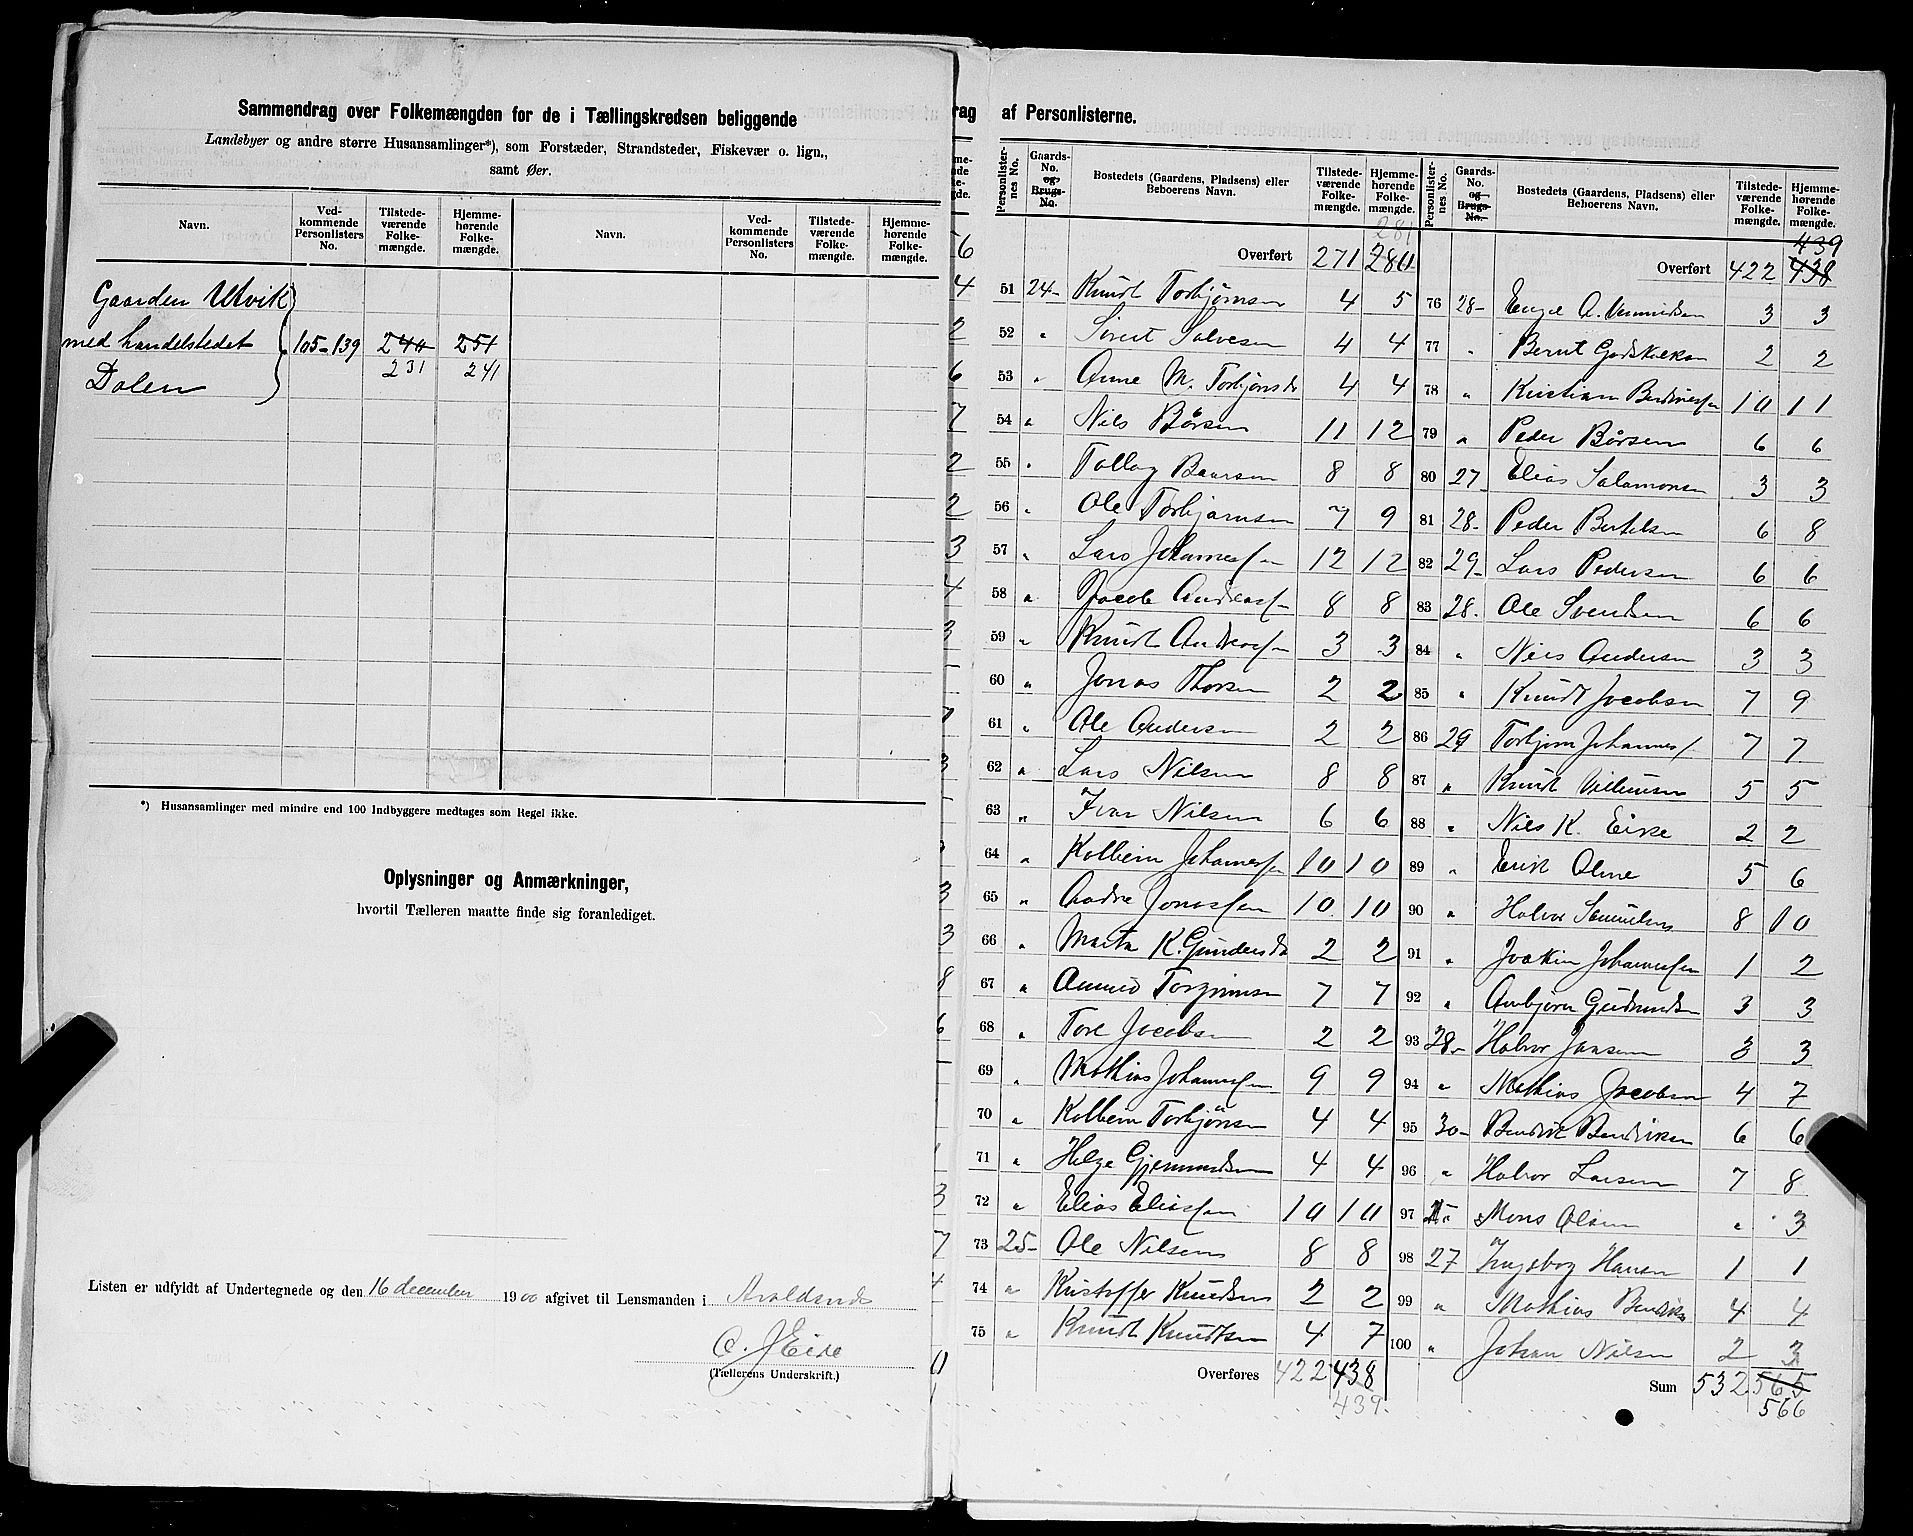 Sammendrag over Folkemængden for de i Tællingskredsen beliggende
Landsbyer og andre större Husansamlinger*), som Forstæder, Strandsteder, Fiskevær o. lign.,
samt Øer.
Navn. Ved-kommende Personlisters No. Tilstede-værende Folke-mængde. Hjemme-hørende Folke-mængde. Navn. Ved-kommende Personlisters No. Tilstede-værende Folke-mængde. Hjemme-hørende Folke-mængde.
Gaarden Utvik
med handelstedet 105-139 240 251
231 241
Dalen
*) Husansamlinger med mindre end 100 Indbyggere medtages som Regel ikke.
Oplysninger og Anmærkninger,
hvortil Tælleren maatte finde sig foranlediget.
Listen er udfyldt af Undertegnede og den 16 december 1900 afgivet til Lensmanden i
O. J Eide
(Tællerens Underskrift.)
rag af Personlisterne.
Personlister-nes No. Gaards-No. og Brugs-No. Bostedets (Gaardens, Pladsens) eller Beboerens Navn. Tilstede-værende Folke-mængde. Hjemme-hørende Folke-mængde.
281
Overført 271 280
51 24- Knudt Torbjørnsen 4 5
52 " Sivert Salvesen 4 4
53 " Anne M. Torbjønsdr 4 4
54 " Nils Børsen 11 12
55 " Tollag Baarsen 8 8
56 " Ole Torbjørnsen 7 9
57 " Lars Johannessen 12 12
58 " Jacob Andreassen 8 8
59 " Knudt Andreassen 3 3
60 " Jonas Thorsen 2 2
61 " Ole Andersen 2 2
62 " Lars Nilsen 8 8
63 " Ivar Nilsen 6 6
64 " Kolbein Johannessen 10 10
65 " Andre Jonassen 10 10
66 " Marta K. Gundersdr 2 2
67 " Amund Torgrimsen 7 7
68 " Tore Jocobsen 2 2
69 " Mathias Johannessen 9 9
70 " Kolbein Torbjönsen 4 4
71 " Helge Gjermundsen 4 4
72 " Elias Eliassen 10 10
73 25- Ole Nilsen 8 8
74 " Kristoffer Knudsen 2 2
75 " Knudt Knudtsen 4 7
Overføres 422 438
439
Personlister-nes No. Gaards-No. og Brugs-No. Bostedets (Gaardens, Pladsens) eller Beboerens Navn. Tilstede-værende Folke-mængde. Hjemme-hørende Folke-mængde.
439
Overført 422 438
76 28- 3 3
77 " Berut 2 2
78 " Kristian 10 11
79 " Peder Börsen 6 6
80 27- Elias Salamonsen 3 3
81 28- Peder Bertelsen 6 8
82 29- Lars Pedersen 6 6
83 28. Ole Svendsen 6 6
84 " Niels Andersen 3 3
85 " Knudt Jocobsen 7 9
86 29 Torbjørn Johannes 7 7
87 " Knudt Villumsen 5 5
88 " Nils K. Eike 2 2
89 " Erik Olme 5 6
90 " Halvor Samuelsen 8 10
91 " Joakim Johannessen 1 2
92 " Anbjørn Gudmundsen 3 3
93 28- Halvor Jansen 3 3
94 " Mathias Jacobsen 4 7
95 30- Bendik Bendiksen 6 6
96 " Halvor Larsen 7 8
97 Mons Olsen " 3
98 27 Ingeborg Hansen 1 1
99 " Mathias Bendiks 4 4
100 " Johan Nilsen 2 3
Sum 532 565
566